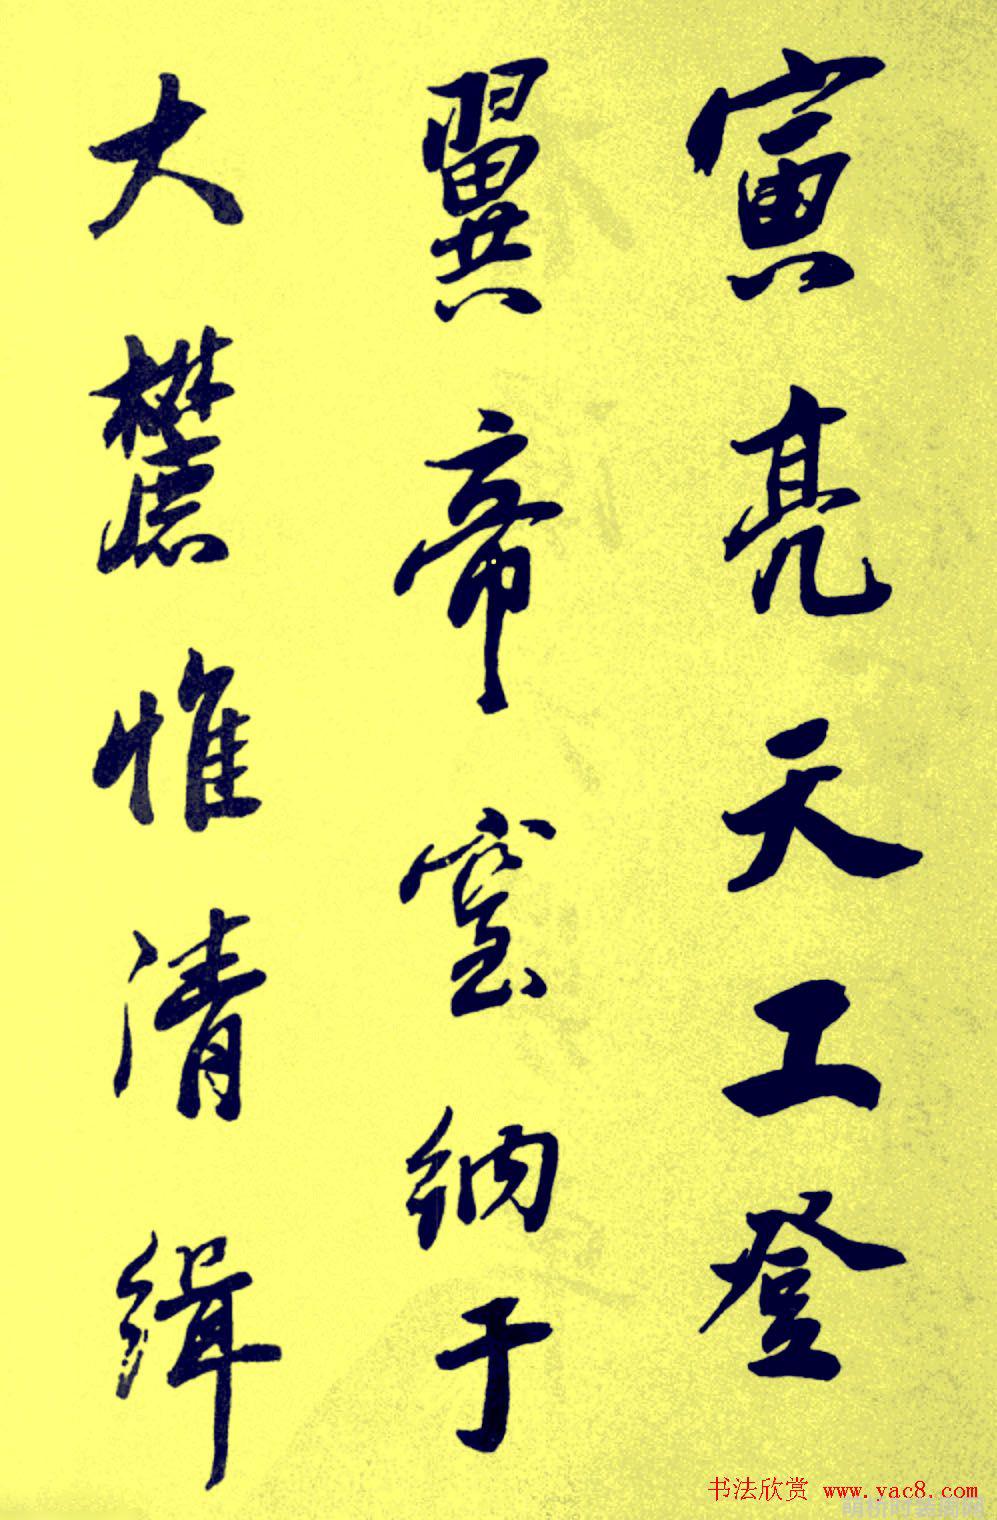 寅亮天工登
翼帝室納于
大麓惟清緝
书法欣赏 www.yac8.com